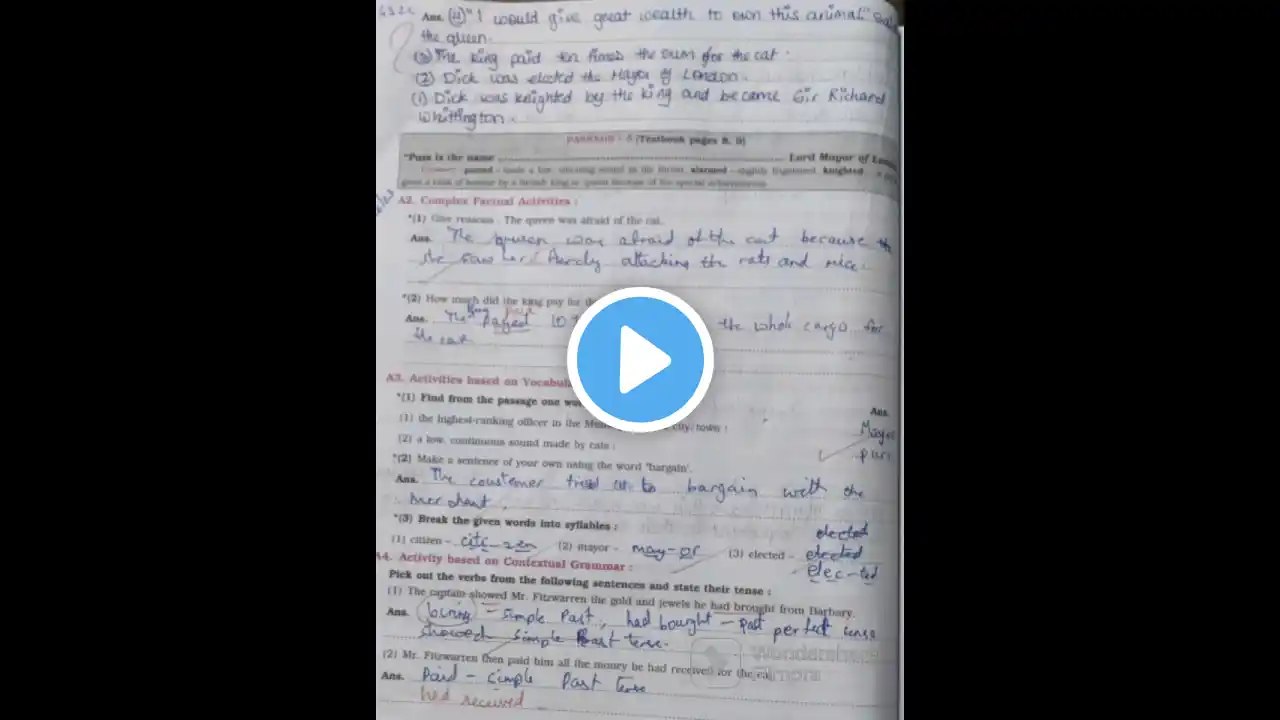 Ans. (4) "I would give great wealth to own this animal"
the queen.
(3) The king paid ten times the sum for the cat.
(2) Dick was elected the Mayor of London.
(1) Dick was knighted by the king and became Sir Richard
Whittington.
PASSAGE - 5 (Textbook pages 8, 9)
"Puss is the name ........ Lord Mayor of
purred - made a low, vibrating sound in the throat, alarmed - slightly frightened, knighted
given a rank of honour by a British king or queen because of the special achievements
A2. Complex Factual Activities :
*(1) Give reasons : The queen was afraid of the cat.
Ans. The queen was afraid of the cat because
she saw her attacking the rats and mice.
*(2) How much did the king pay for
Ans. The king paid payed 10 the whole cargo for
the cat
A3. Activities based on
*(1) Find from the passage one
Ans.
(1) the highest-ranking officer in the city, town : Mayor
(2) a low, continuous sound made by cats : purr
*(2) Make a sentence of your own using the word 'bargain'.
Ans. The coustemer tried to bargain with the
merchant.
*(3) Break the given words into syllables : elected
(1) citizen - citi-zen (2) mayor - may-or (3) elected - elected
elec-ted
A4. Activity based on Contextual Grammar :
Pick out the verbs from the following sentences and state their tense :
(1) The captain showed Mr. Fitzwarren the gold and jewels he had brought from Barbary.
Ans. - simple Past, had bought - past perfect tense
showed simple Past tense.
(2) Mr. Fitzwarren then paid him all the money he had received for the cat
Ans. Paid - simple Past Tense
had received
Wondershare
Filmora